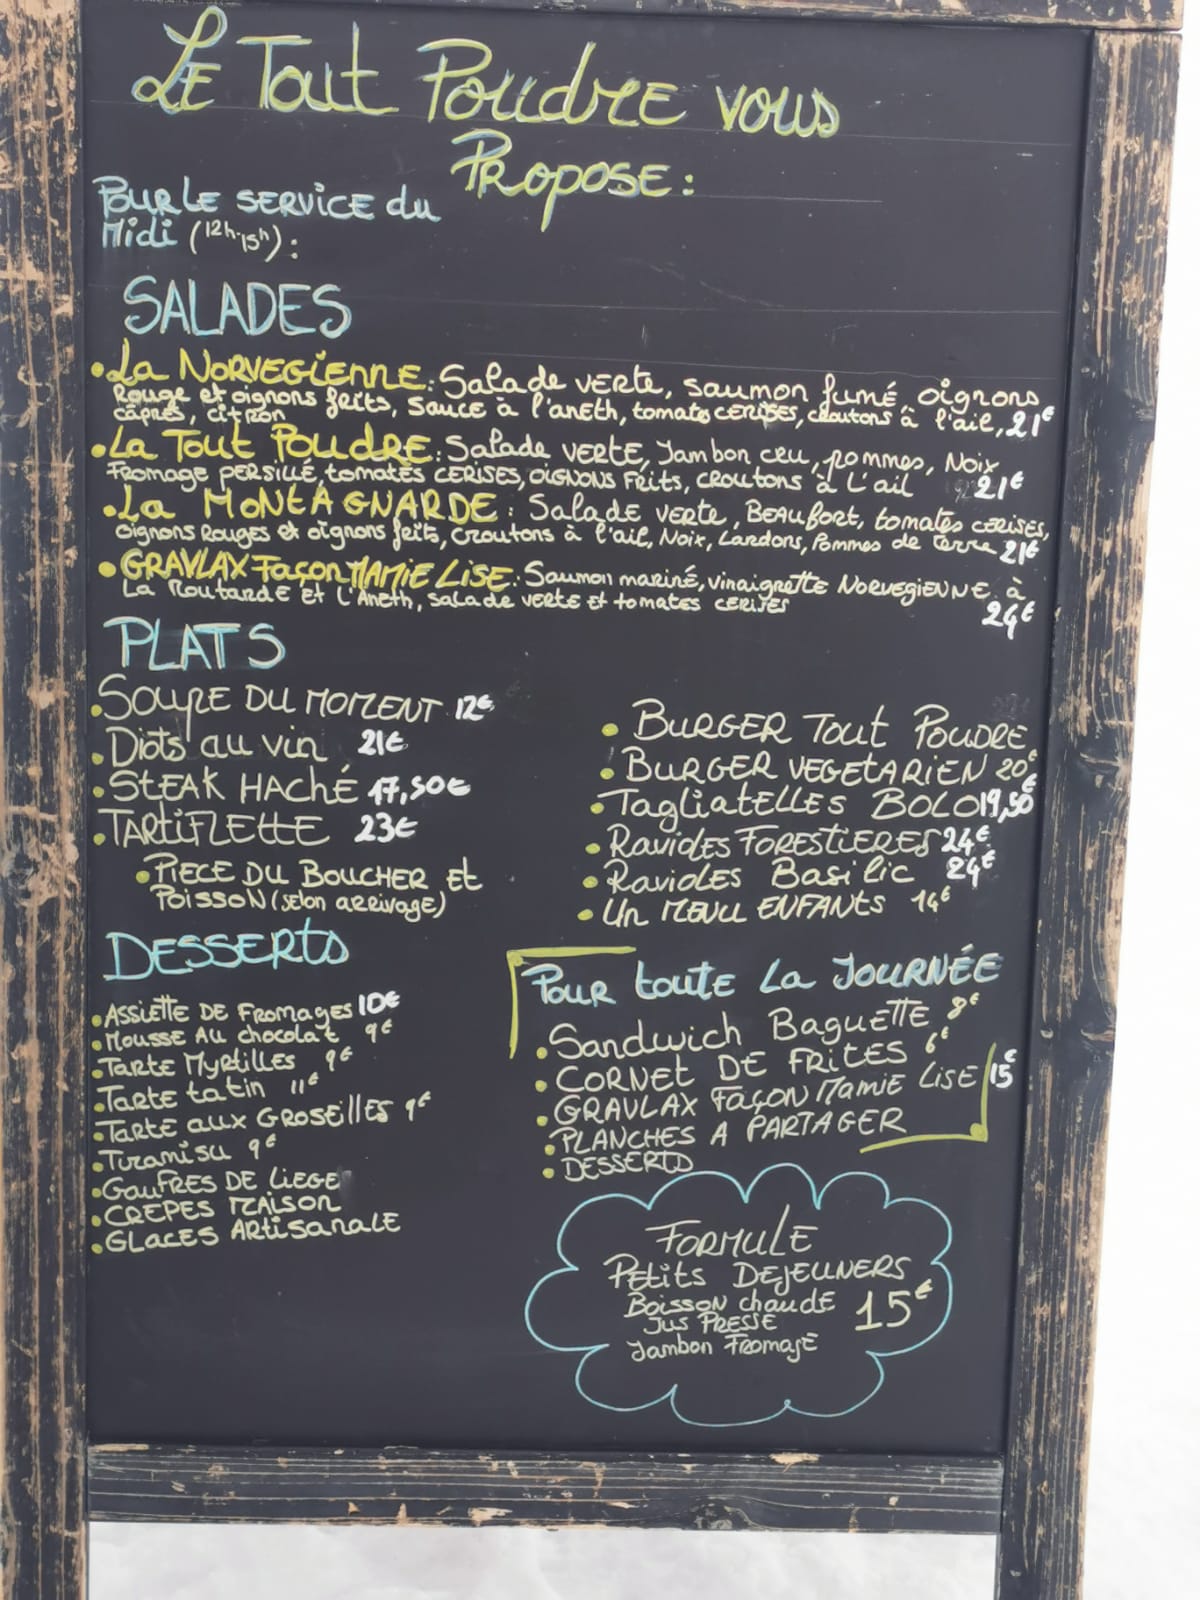 LE Tout Poudre vous
Propose :
Pour LE SERVICE du
Midi (12h-15h) :
SALADES
• La NORVEGIENNE : Salade verte, saumon fumé, oignons
Rouge et oignons frits, sauce à l'aneth, tomates cerises, croutons à l'ail, 21€
câpres, citron
• La Tout Poudre : Salade verte, Jambon cru, pommes, Noix,
Fromage persillé, tomates cerises, oignons frits, croutons à l'ail 21€
• La MONTAGNARDE : Salade verte, Beaufort, tomates cerises,
oignons Rouges et oignons frits, croutons à l'ail, Noix, Lardons, Pommes de terre 21€
• GRAVLAX Façon MAMIE LISE : Saumon mariné, vinaigrette Norvegienne à
La Moutarde et l'Aneth, salade verte et tomates cerises
24€
PLATS
• Soupe DU MOMENT 12€
• Diots au vin 21€
• STEAK HAChé 17,50€
• TARTIFLETTE 23€
• PIECE DU BOUCHER Et
POISSON (selon arrivage)
• BURGER Tout Poudre
• BURGER VEGETARIEN 20€
• TagliatELLES BOLO 19,50€
• Ravioles FORESTIERES 24€
• Ravioles Basilic 24€
• Un MENU ENFANTS 14€
DESSERTS
• ASSIETTE DE Fromages 10€
• MOUSSE AU chocolat 9€
• Tarte Myrtilles 9€
• Tarte tatin 11€
• Tarte aux GROSEILLES 9€
• Tiramisu 9€
• Gaufres DE LIEGE
• CREPES MAISON
• GLACES ARTisanaLE
Pour toute La JOURNÉE
• Sandwich BaguETTE 8€
• CORNET DE FRITES 6€
• GRAVLAX Façon Mamie Lise 15€
• PLANCHES A PARTAGER
• DESSERTS
FORMULE
Petits DEJEUNERS
Boisson chaude 15€
Jus PRESSE
Jambon Fromage